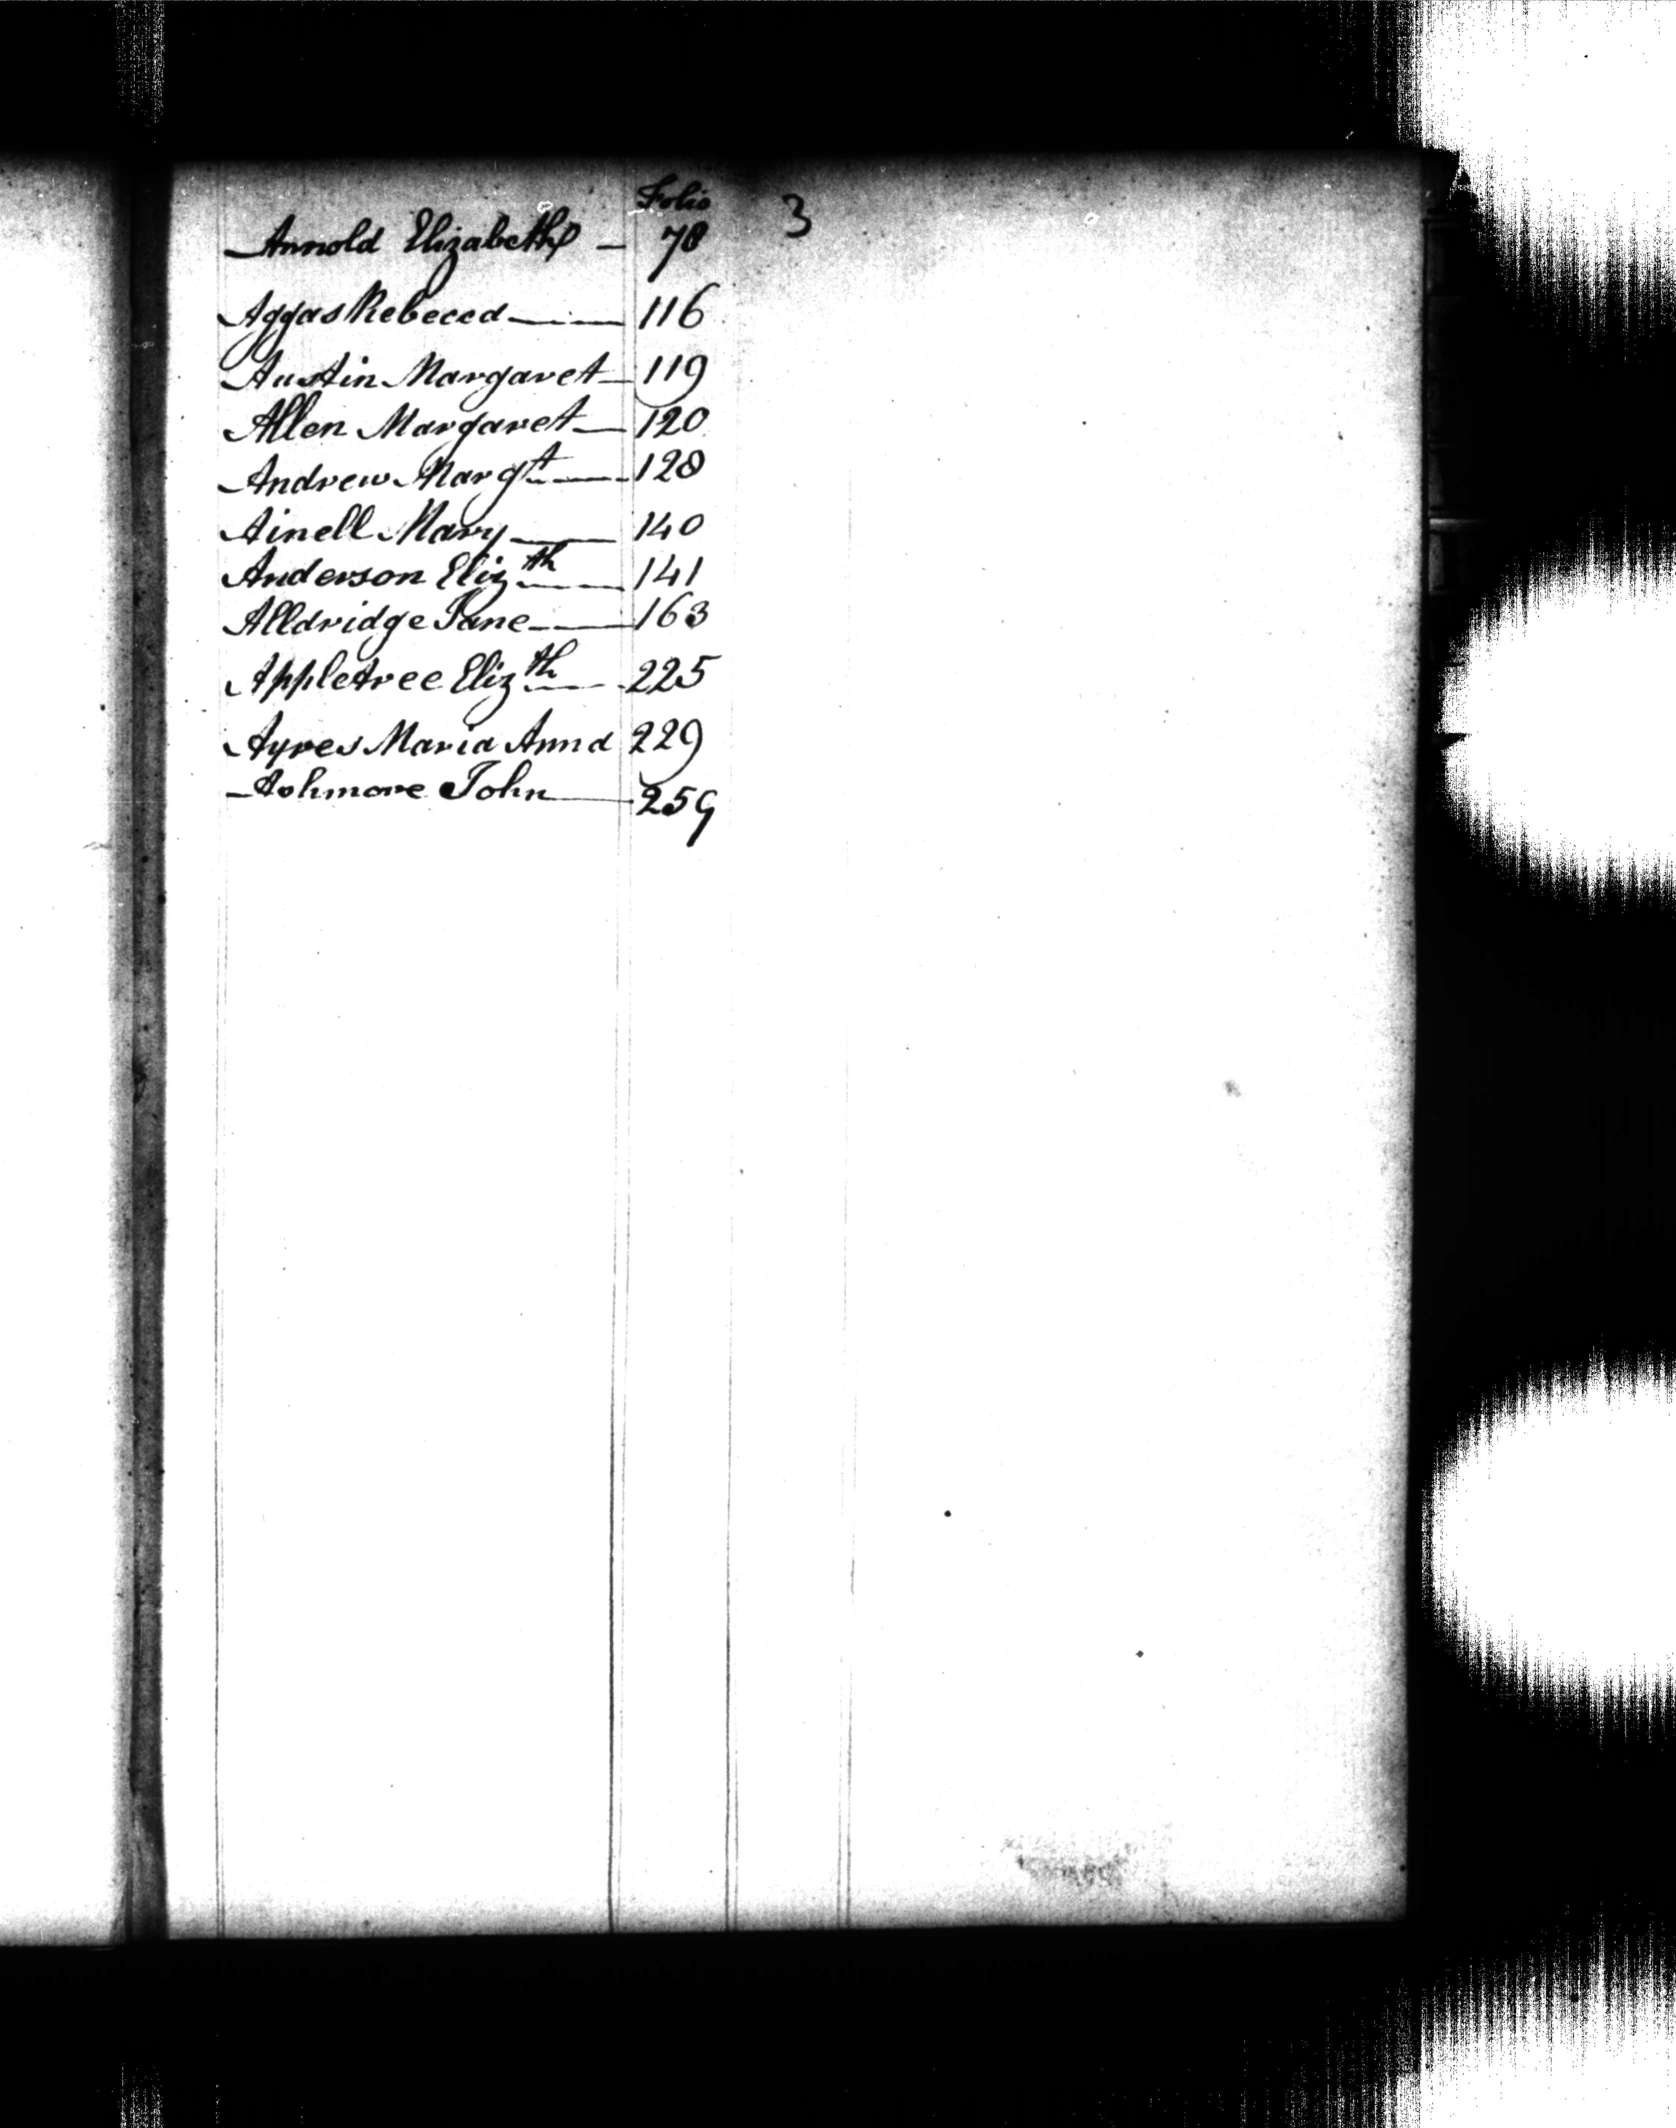 Folio
3
Arnold Elizabeth — 78
Aggas Rebecca — 116
Austin Margaret — 119
Allen Margaret — 120
Andrew Margt — 128
Ainell Mary — 140
Anderson Elizth — 141
Alldridge Jane — 163
Appletree Elizth — 225
Ayres Maria Anna 229
Ashmore John — 259